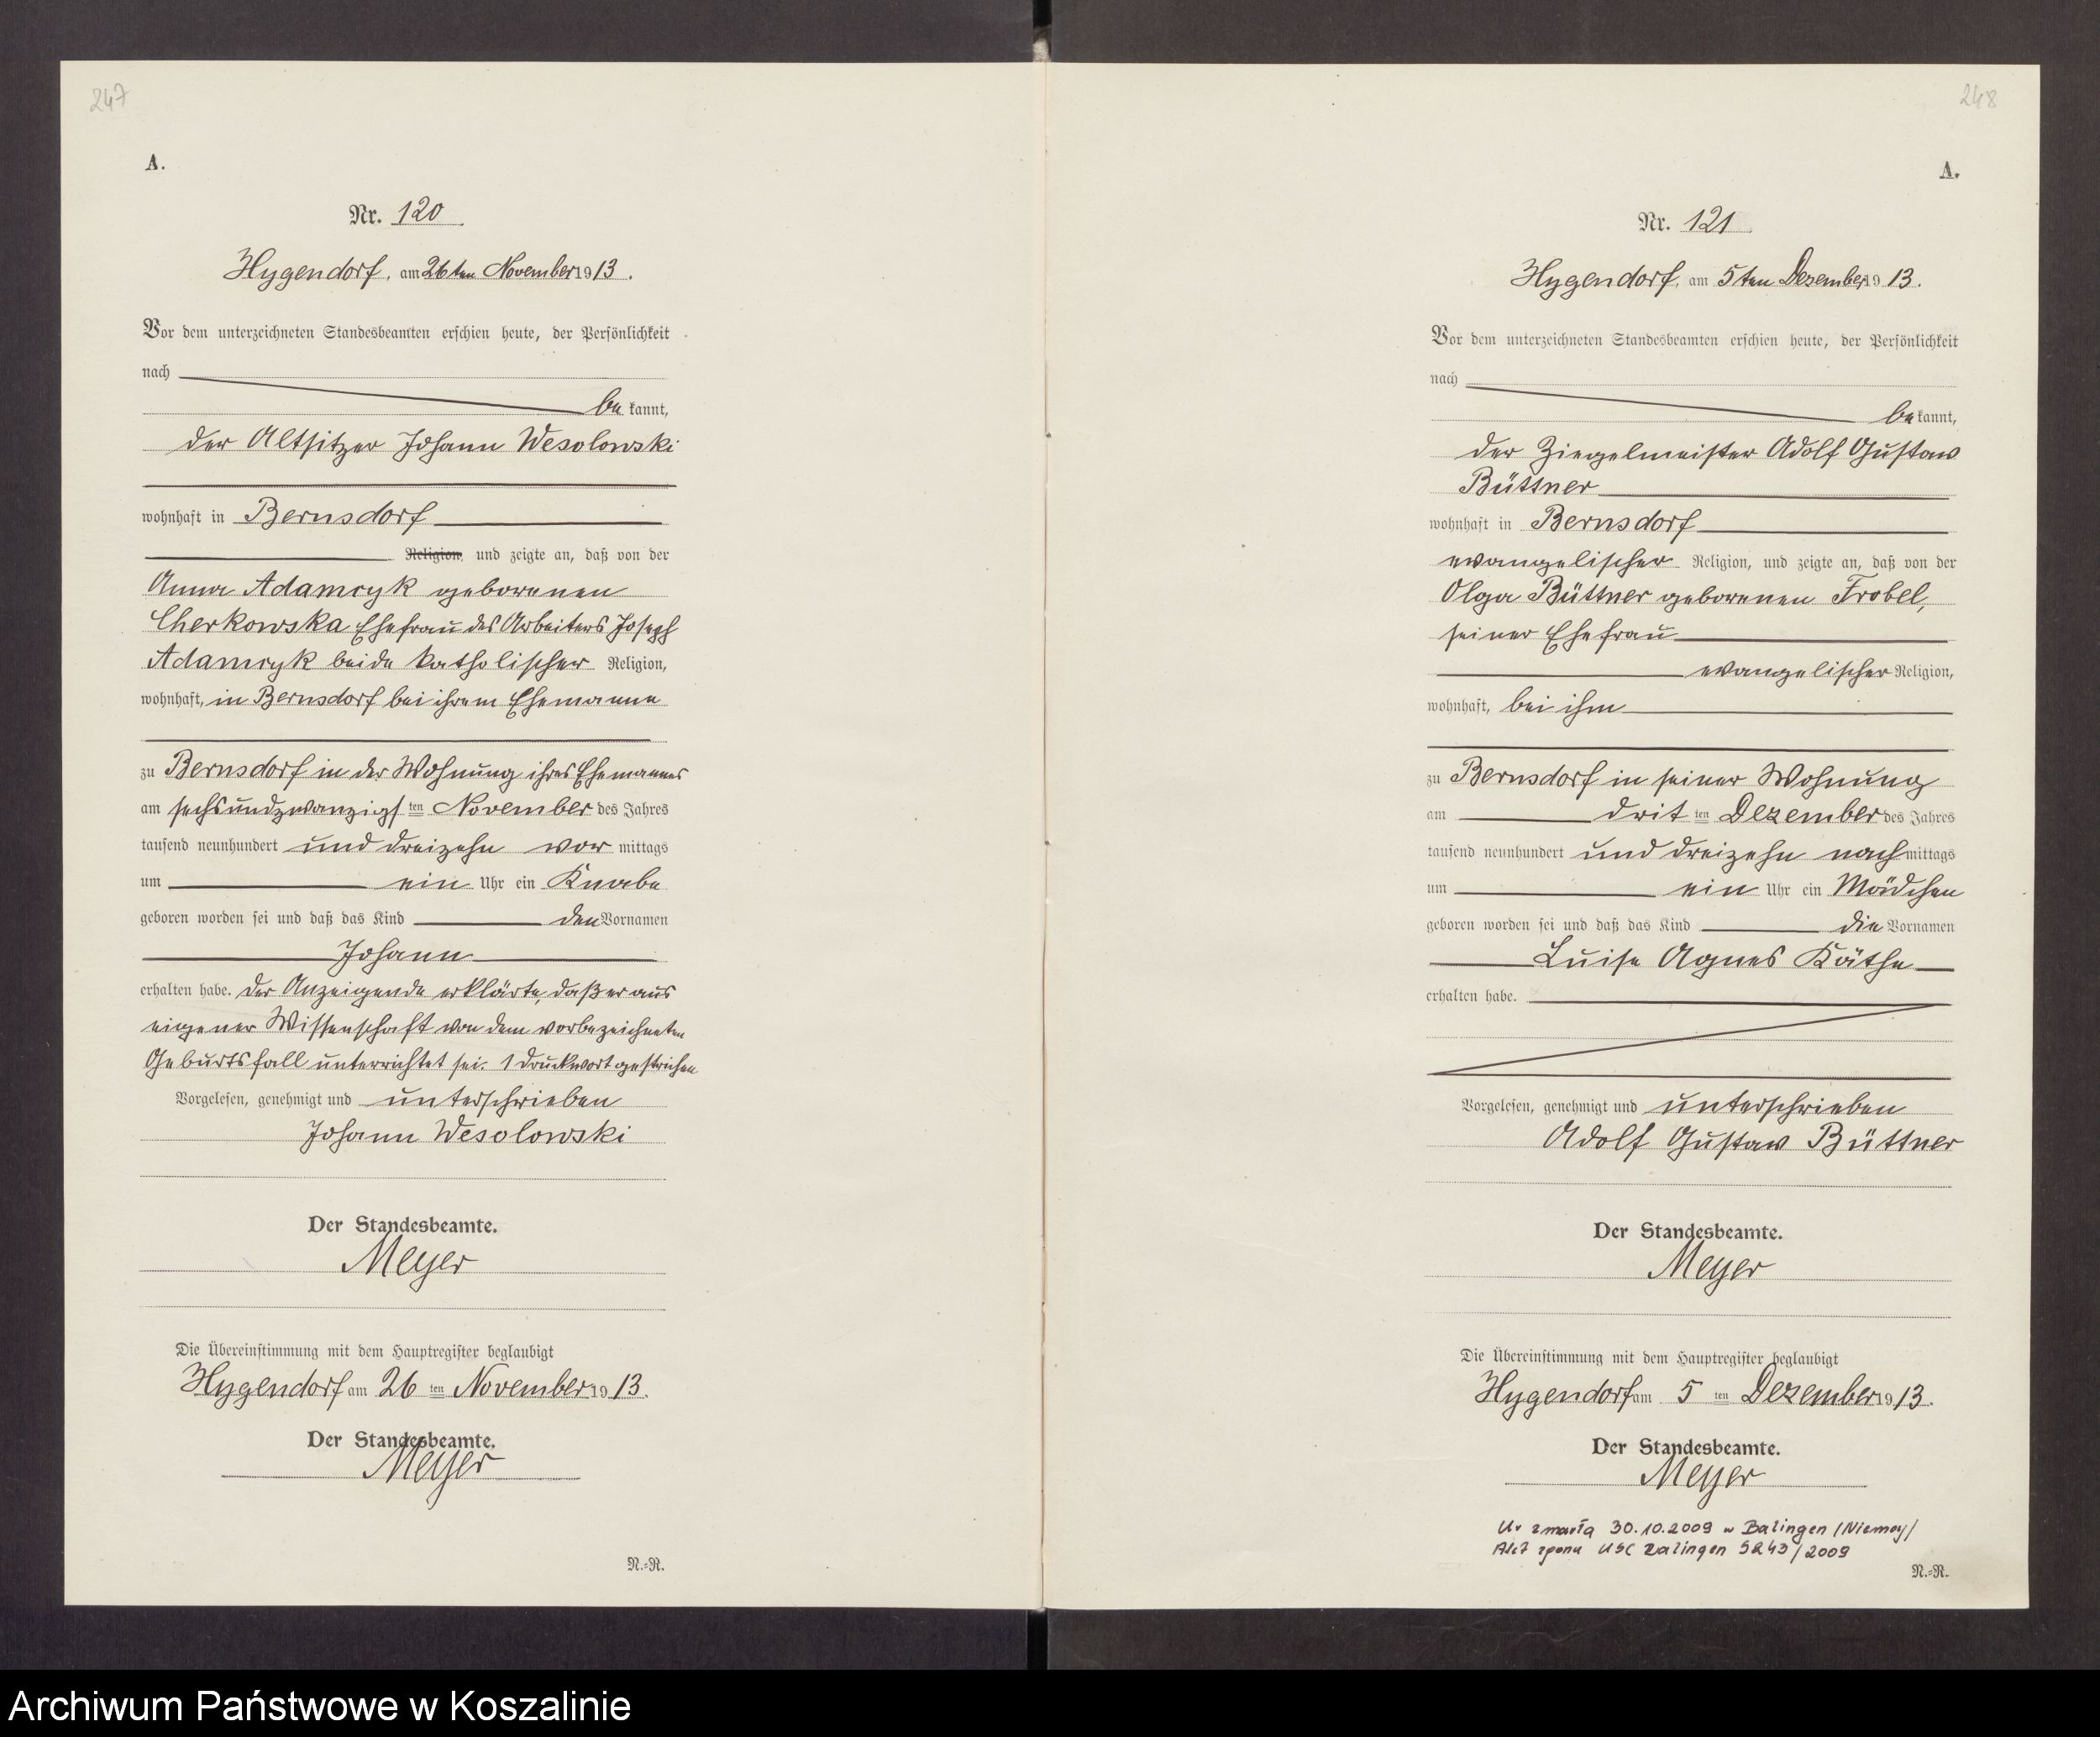 247
A.
Nr. 120
Hygendorf, am 26ten November 1913.
Vor dem unterzeichneten Standesbeamten erschien heute, der Persönlichkeit
nach
be kannt,
der Altsitzer Johann Wesolowski
wohnhaft in Bernsdorf
Religion, und zeigte an, daß von der
Anna Adamcyk geborenen
Cherkowska Ehefrau des Arbeiters Joseph
Adamcyk beide katholischer Religion,
wohnhaft, in Bernsdorf bei ihrem Ehemanne
zu Bernsdorf in der Wohnung ihres Ehemannes
am sechsundzwanzigsten November des Jahres
tausend neunhundert und dreizehn vor mittags
um ein Uhr ein Knabe
geboren worden sei und daß das Kind den Vornamen
Johann
erhalten habe. Der Anzeigende erklärte, daß er aus
eigener Wissenschaft von dem vorbezeichneten
Geburtsfall unterrichtet sei. 1 Druckwort gestrichen
Vorgelesen, genehmigt und unterschrieben
Johann Wesolowski
Der Standesbeamte.
Meyer
Die Übereinstimmung mit dem Hauptregister beglaubigt
Hygendorf am 26 ten November 1913.
Der Standesbeamte.
Meyer
N.-R.
248
A.
Nr. 121
Hygendorf, am 5ten Dezember 1913.
Vor dem unterzeichneten Standesbeamten erschien heute, der Persönlichkeit
nach
be kannt,
der Ziegelmeister Adolf Gustav
Büttner
wohnhaft in Bernsdorf
evangelischer Religion, und zeigte an, daß von der
Olga Büttner geborenen Frobel,
seiner Ehefrau
evangelischer Religion,
wohnhaft, bei ihm
zu Bernsdorf in seiner Wohnung
am dritten Dezember des Jahres
tausend neunhundert und dreizehn nach mittags
um ein Uhr ein Mädchen
geboren worden sei und daß das Kind die Vornamen
Luise Agnes Käthe
erhalten habe.
Vorgelesen, genehmigt und unterschrieben
Adolf Gustav Büttner
Der Standesbeamte.
Meyer
Die Übereinstimmung mit dem Hauptregister beglaubigt
Hygendorf am 5 ten Dezember 1913.
Der Standesbeamte.
Meyer
zmarła 30.10.2009 w Balingen /Niemcy/
Akt zgonu USC Balingen S243/2009
N.-R.
Archiwum Państwowe w Koszalinie